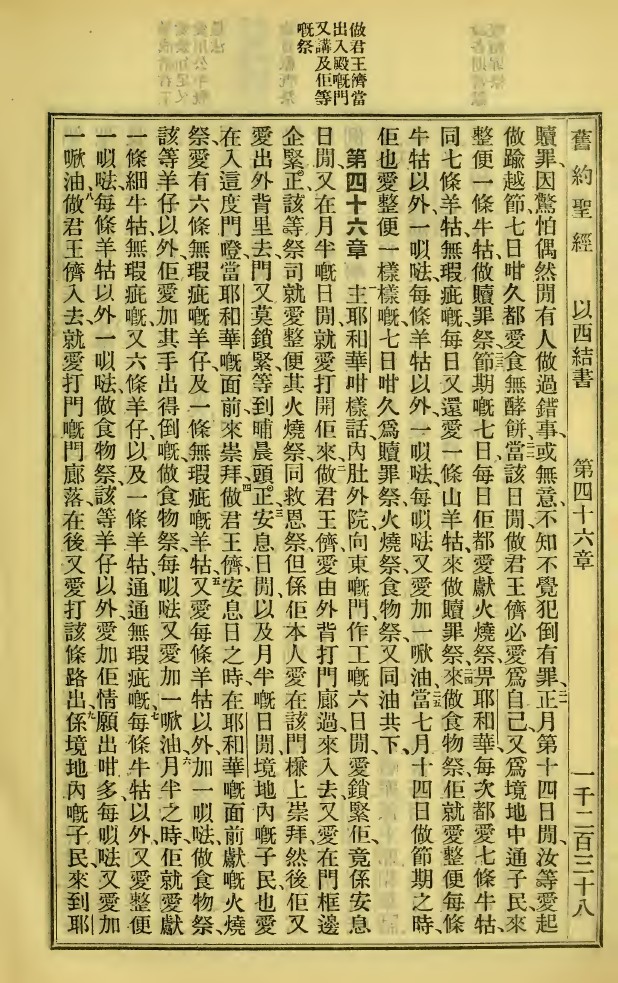 舊約聖經 以西結書 第四十六章 一千二百三十八
做君王儕當
出入殿嘅門
又講及佢等
嘅祭
贖罪、因驚怕偶然閒有人做過錯事、或無意、不知不覺犯倒有罪、二一正月第十四日閒、汝等愛起
做踰越節、七日咁久都愛食無酵餅、二二當該日閒、做君王儕必愛爲自己、又爲境地中通子民、來
整便一條牛牯做贖罪祭、二三節期嘅七日、每日佢都愛獻火燒祭畀耶和華、每次都愛七條牛牯、
同七條羊牯、無瑕疵嘅、每日又還愛一條山羊牯、來做贖罪祭、二四來做食物祭、佢就愛整便每條
牛牯以外、一𠸎呠、每條羊牯以外、一𠸎呠、每𠸎呠又愛加一㗜油、二五當七月十四日做節期之時、
佢也愛整便一樣樣嘅、七日咁久、爲贖罪祭、火燒祭、食物祭、又同油共下、
第四十六章 一主耶和華咁樣話、內肚外院、向東嘅門、作工嘅六日閒、愛鎖緊佢、竟係安息
日閒、又在月半嘅日閒、就愛打開佢來、二做君王儕、愛由外背打門廊過來入去、又愛在門框邊
企緊、正該等祭司就愛整便其火燒祭、同救恩祭、但係佢本人愛在該門檻上崇拜、然後佢又
愛出外背里去、門又莫鎖緊、等到晡晨頭正、三安息日閒、以及月半嘅日閒、境地內嘅子民、也愛
在入這度門嘅當、耶和華嘅面前來崇拜、四做君王儕、安息日之時、在耶和華嘅面前獻嘅火燒
祭、愛有六條無瑕疵嘅羊仔、及一條無瑕疵嘅羊牯、五又愛每條羊牯以外、加一𠸎呠、做食物祭、
該等羊仔以外、佢愛加其手出得倒嘅、做食物祭、每𠸎呠又愛加一㗜油、六月半之時、佢就愛獻
一條細牛牯、無瑕疵嘅、又六條羊仔、以及一條羊牯、通通無瑕疵嘅、七每條牛牯以外、又愛整便
一𠸎呠、每條羊牯以外、一𠸎呠、做食物祭、該等羊仔以外、愛加佢情願出咁多、每𠸎呠又愛加
一㗜油、八做君王儕入去、就愛打門嘅門廊、落在後又愛打該條路出、九係境地內嘅子民、來到耶